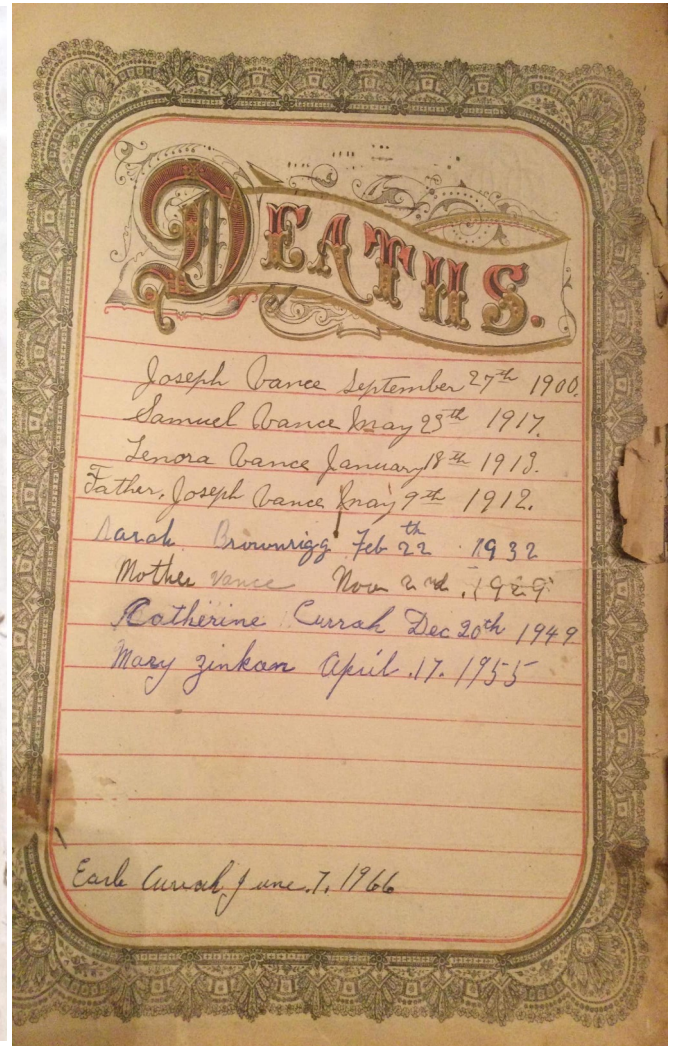 DEATHS.
Joseph Vance September 27th 1900.
Samuel Vance May 23th 1917.
Lenora Vance January 18th 1913.
Father, Joseph Vance May 9th 1912.
Sarah Brownrigg Feb 22th 1932
Mother Vance Nov 2nd. 1929
Catherine Currah Dec 20th 1949
Mary Zinkan April .17. 1955
Earle Currah June. 7. 1966